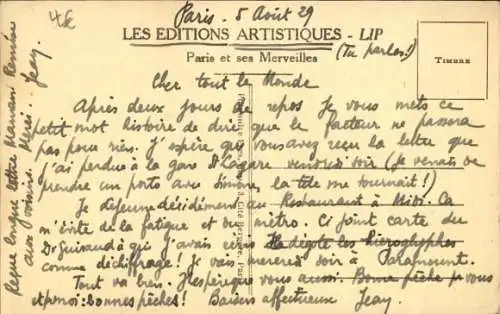 4€
Paris. 5 Août 29
LES EDITIONS ARTISTIQUES - LIP
(Tu parles!)
Paris et ses Merveilles
TIMBRE
Cher tout le Monde
Après deux jours de repos Je vous mets ce
petit mot histoire de dire que le facteur ne passera
pas pour rien. J'espère que vous avez reçu la lettre que
j'ai perdue à la gare St Lazare vendredi soir (Je venais de
prendre un porto avec Simone, la tête me tournait!)
Je déjeune décidément au Restaurant à Midi. Ça
m'évite de la fatigue et du métro. Ci joint carte du
Dr Guiraud à qui j'avais écris
comme déchiffrage! Je vais mercredi soir à Paramount.
Tout va bien. J'espère que vous aussi. Bonne pêche
et pr moi: bonnes pêches! Baisers affectueux Jeay.
Reçue longue lettre Maman Remise
aux voisins. Merci. Jeay.